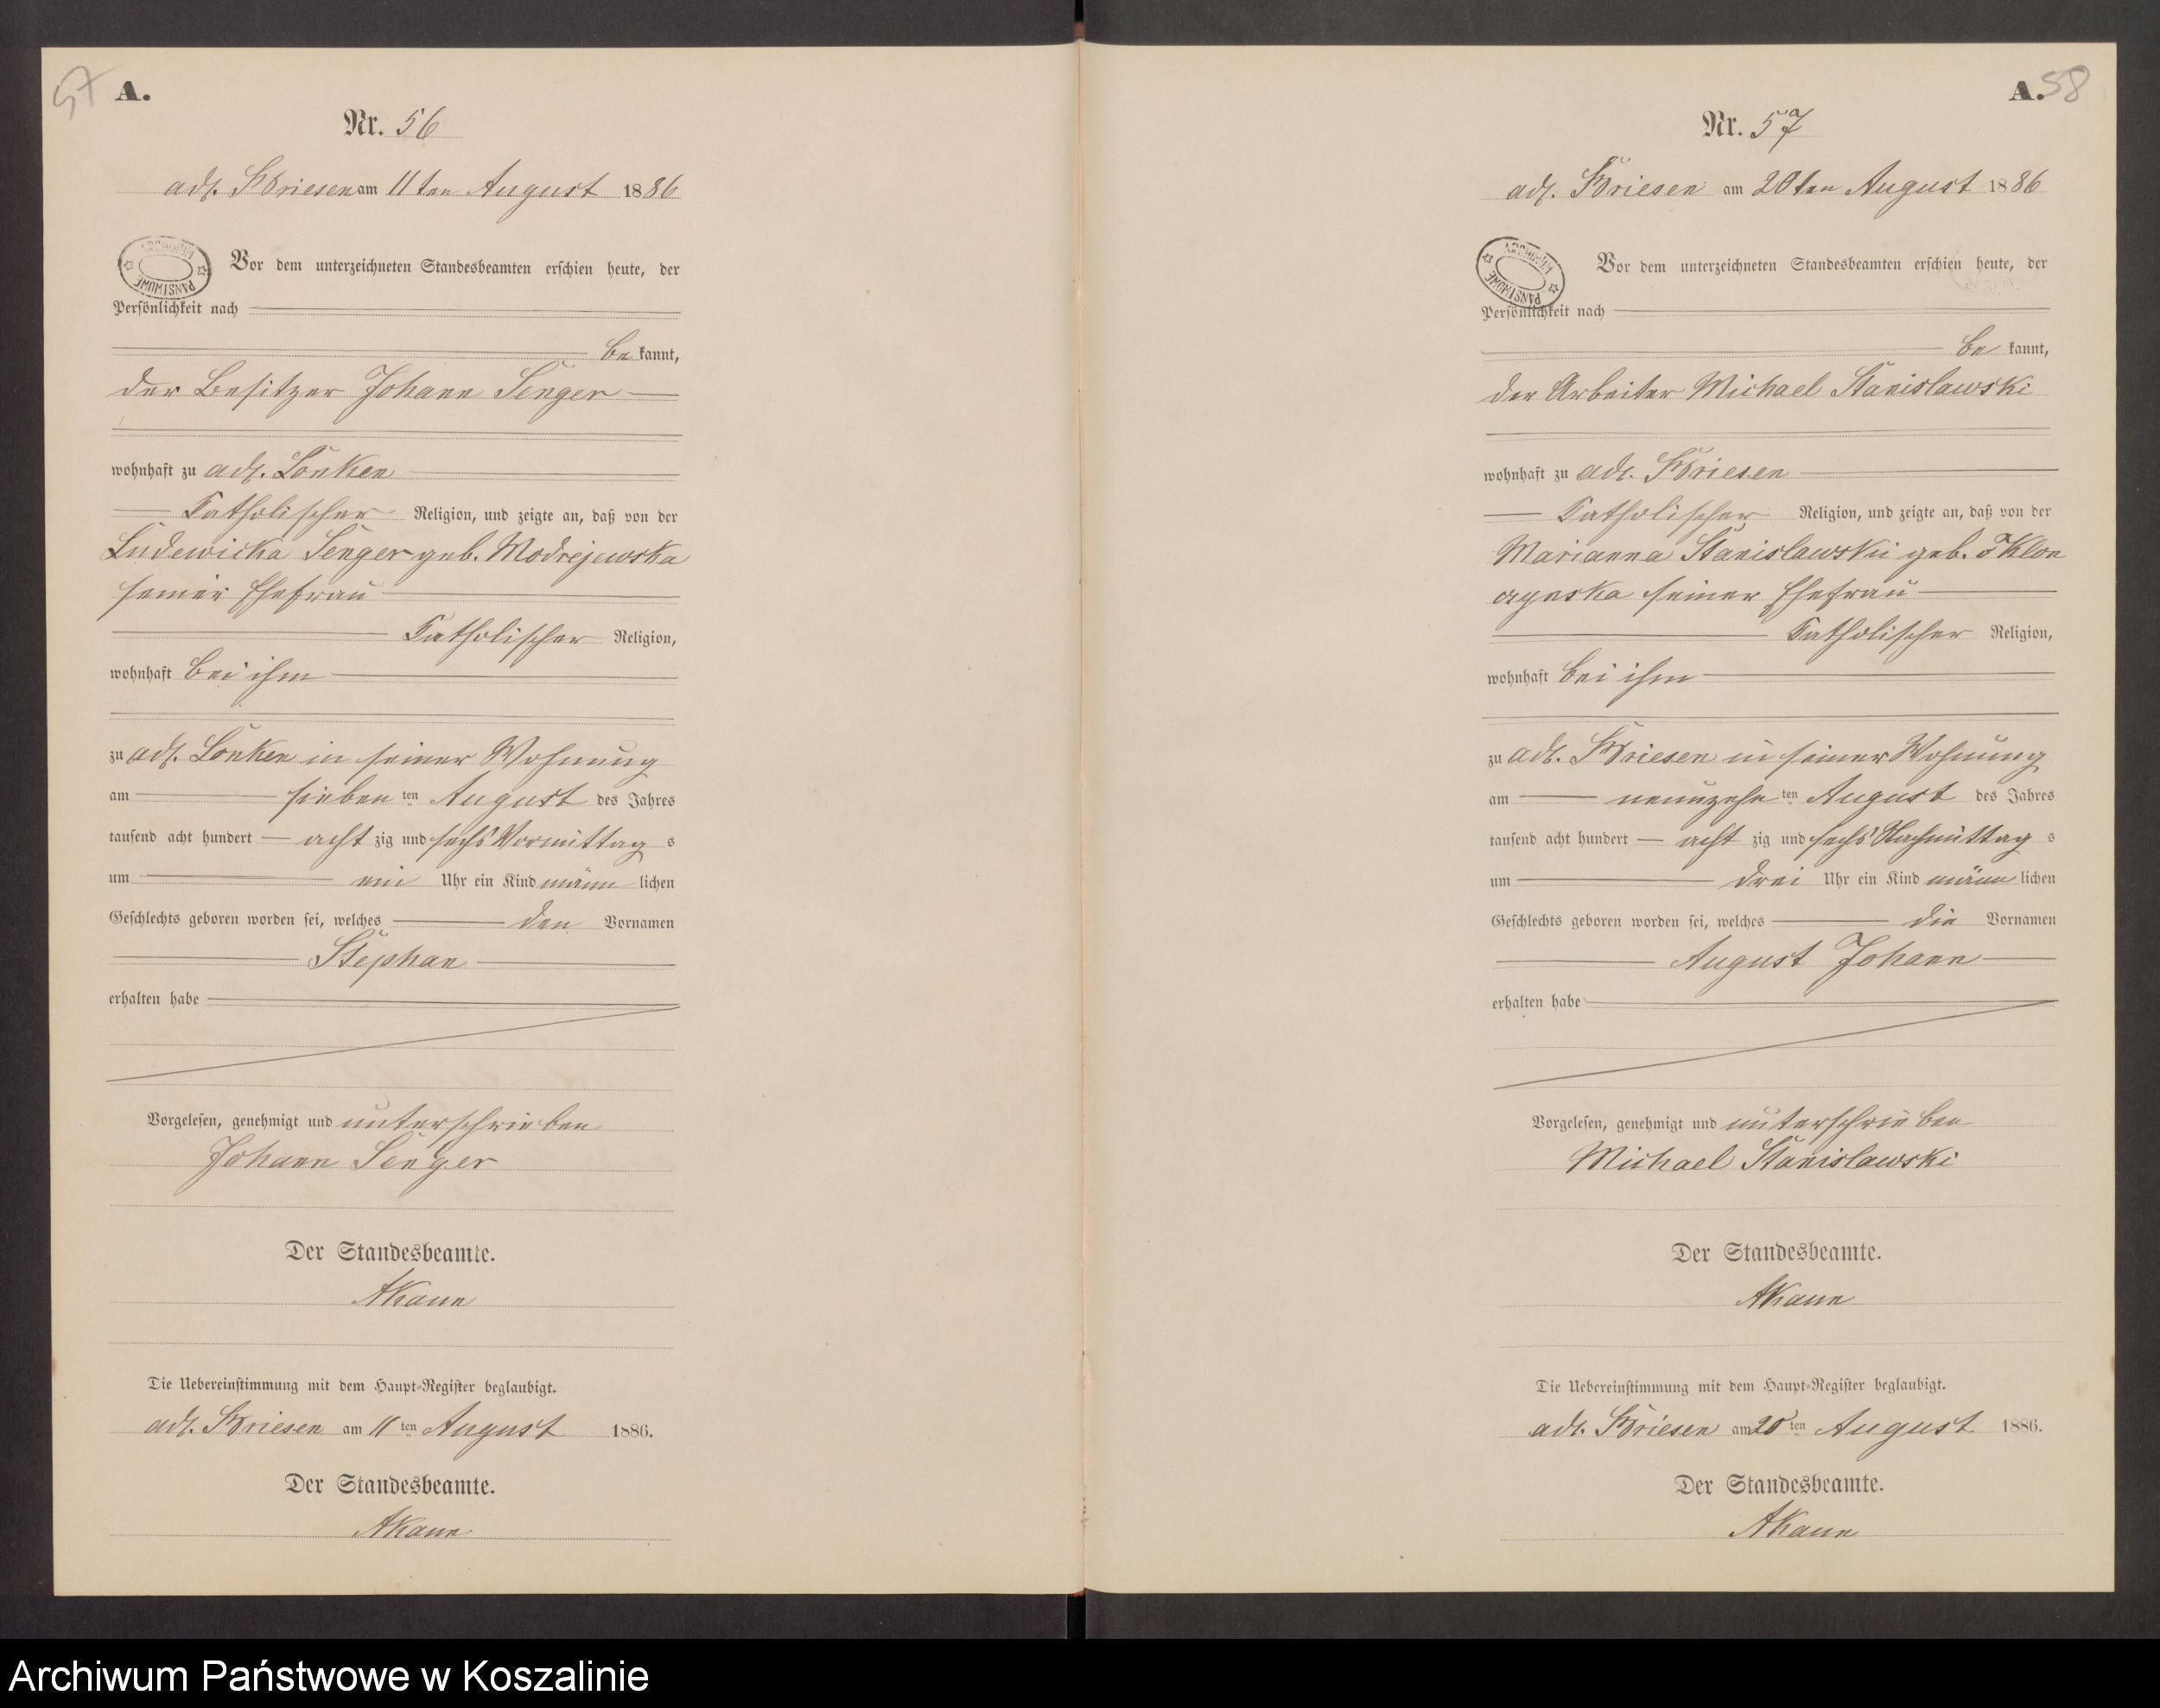 57
A.
Nr. 56
adl. Briesen am 11ten August 1886
ARCHIWUM
PAŃSTWOWE
Vor dem unterzeichneten Standesbeamten erschien heute, der
Persönlichkeit nach
be kannt,
der Besitzer Johann Senger
wohnhaft zu adl. Lonken
Katholischer Religion, und zeigte an, daß von der
Ludewicka Senger geb. Modrejewska
seiner Ehefrau
Katholischer Religion,
wohnhaft bei ihm
zu adl. Lonken in seiner Wohnung
am sieben ten August des Jahres
tausend acht hundert acht zig und sechs Vormittag s
um ein Uhr ein Kind männ lichen
Geschlechts geboren worden sei, welches den Vornamen
Stephan
erhalten habe
Vorgelesen, genehmigt und unterschrieben
Johann Senger
Der Standesbeamte.
AKann
Die Uebereinstimmung mit dem Haupt-Register beglaubigt.
adl. Briesen am 11 ten August 1886.
Der Standesbeamte.
AKann
A. 58
Nr. 57
adl. Briesen am 20ten August 1886
ARCHIWUM
PAŃSTWOWE
Vor dem unterzeichneten Standesbeamten erschien heute, der
Persönlichkeit nach
be kannt,
der Arbeiter Michael Stanislawski
wohnhaft zu adl. Briesen
Katholischer Religion, und zeigte an, daß von der
Marianna Stanislawski geb. Klon
czynska seiner Ehefrau
Katholischer Religion,
wohnhaft bei ihm
zu adl. Briesen in seiner Wohnung
am neunzehn ten August des Jahres
tausend acht hundert acht zig und sechs Nachmittag s
um drei Uhr ein Kind männ lichen
Geschlechts geboren worden sei, welches die Vornamen
August Johann
erhalten habe
Vorgelesen, genehmigt und unterschrieben
Michael Stanislawski
Der Standesbeamte.
AKann
Die Uebereinstimmung mit dem Haupt-Register beglaubigt.
adl. Briesen am 20 ten August 1886.
Der Standesbeamte.
AKann
Archiwum Państwowe w Koszalinie